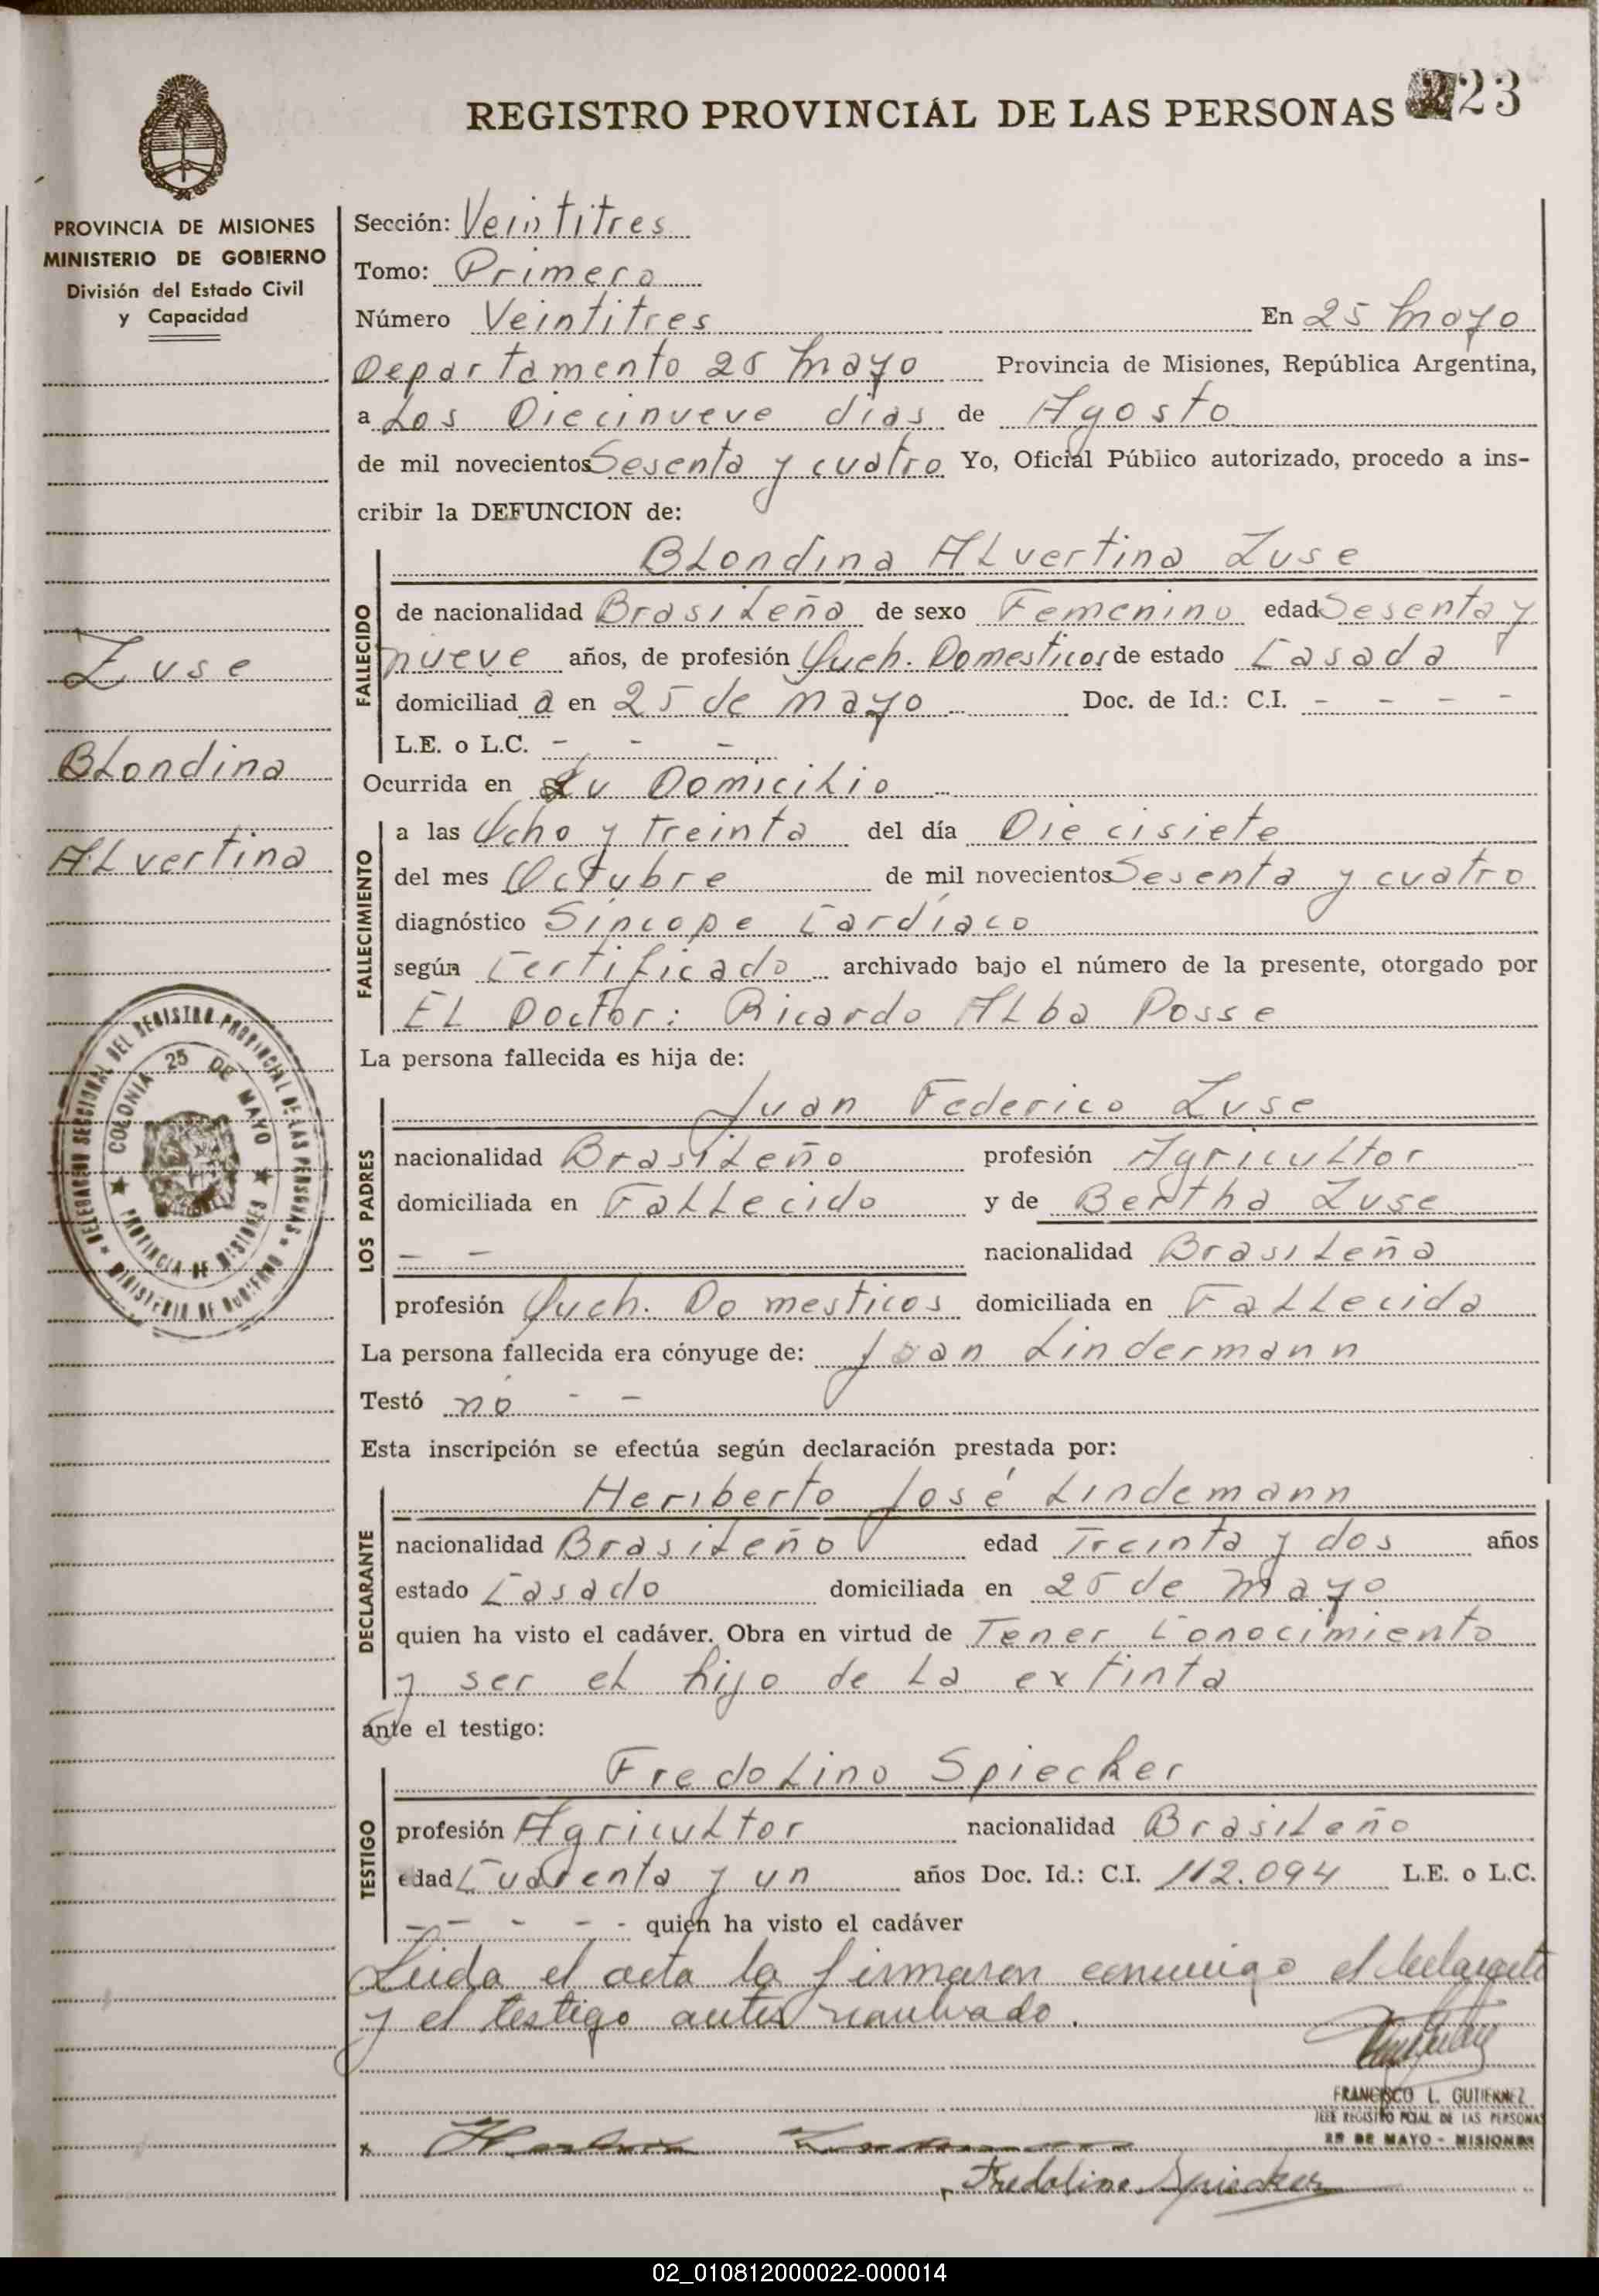 REGISTRO PROVINCIAL DE LAS PERSONAS 23
PROVINCIA DE MISIONES
MINISTERIO DE GOBIERNO
División del Estado Civil
y Capacidad
Zuse
Blondina
Alvertina
DELEGACION SECCIONAL DEL REGISTRO PROVINCIAL DE LAS PERSONAS
MINISTERIO DE GOBIERNO
COLONIA 25 DE MAYO
PROVINCIA DE MISIONES
Sección: Veintitres
Tomo: Primero
Número Veintitres En 25 Mayo
Departamento 25 Mayo Provincia de Misiones, República Argentina,
a Los Diecinueve dias de Agosto
de mil novecientos Sesenta y cuatro Yo, Oficial Público autorizado, procedo a ins-
cribir la DEFUNCION de:
FALLECIDO
Blondina Alvertina Zuse
de nacionalidad Brasileña de sexo Femenino edad Sesenta y
nueve años, de profesión Queh. Domesticos de estado Casada
domiciliad a en 25 de Mayo Doc. de Id.: C.I. - - - -
L.E. o L.C. - - -
Ocurrida en Su Domicilio
FALLECIMIENTO
a las Ocho y Treinta del día Diecisiete
del mes Octubre de mil novecientos Sesenta y cuatro
diagnóstico Síncope Cardíaco
según Certificado archivado bajo el número de la presente, otorgado por
El Doctor: Ricardo Alba Posse
La persona fallecida es hija de:
LOS PADRES
Juan Federico Zuse
nacionalidad Brasileño profesión Agricultor
domiciliada en Fallecido y de Bertha Zuse
- - nacionalidad Brasileña
profesión Queh. Domesticos domiciliada en Fallecida
La persona fallecida era cónyuge de: Joan Lindermann
Testó no - -
Esta inscripción se efectúa según declaración prestada por:
DECLARANTE
Heriberto José Lindemann
nacionalidad Brasileño edad Treinta y dos años
estado Casado domiciliada en 25 de Mayo
quien ha visto el cadáver. Obra en virtud de Tener Conocimiento
y ser el hijo de La extinta
ante el testigo:
TESTIGO
Fredolino Spiecker
profesión Agricultor nacionalidad Brasileño
edad Cuarenta y un años Doc. Id.: C.I. 112.094 L.E. o L.C.
- - - - - quien ha visto el cadáver
Leida el acta la firmaron conmigo el declarante
y el testigo antes nombrado.
FRANCISCO L. GUTIERREZ
JEFE REGISTRO PCIAL DE LAS PERSONAS
25 DE MAYO - MISIONES
Fredolino Spiecker
02_010812000022-000014